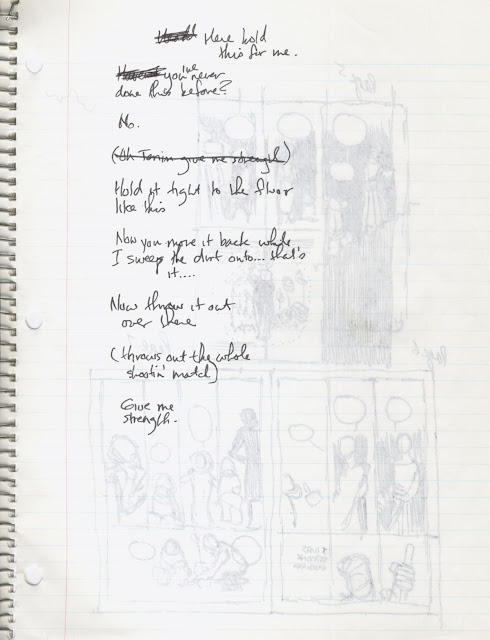 Here hold
this for me.
you've never
done this before?
No.
(Oh Tarim give me strength)
Hold it tight to the floor
like this
Now you move it back while
I sweep the dirt onto... that's
it....
Now throw it out
over there
(throws out the whole
shootin' match)
Give me
strength.
Page 5
Page 6